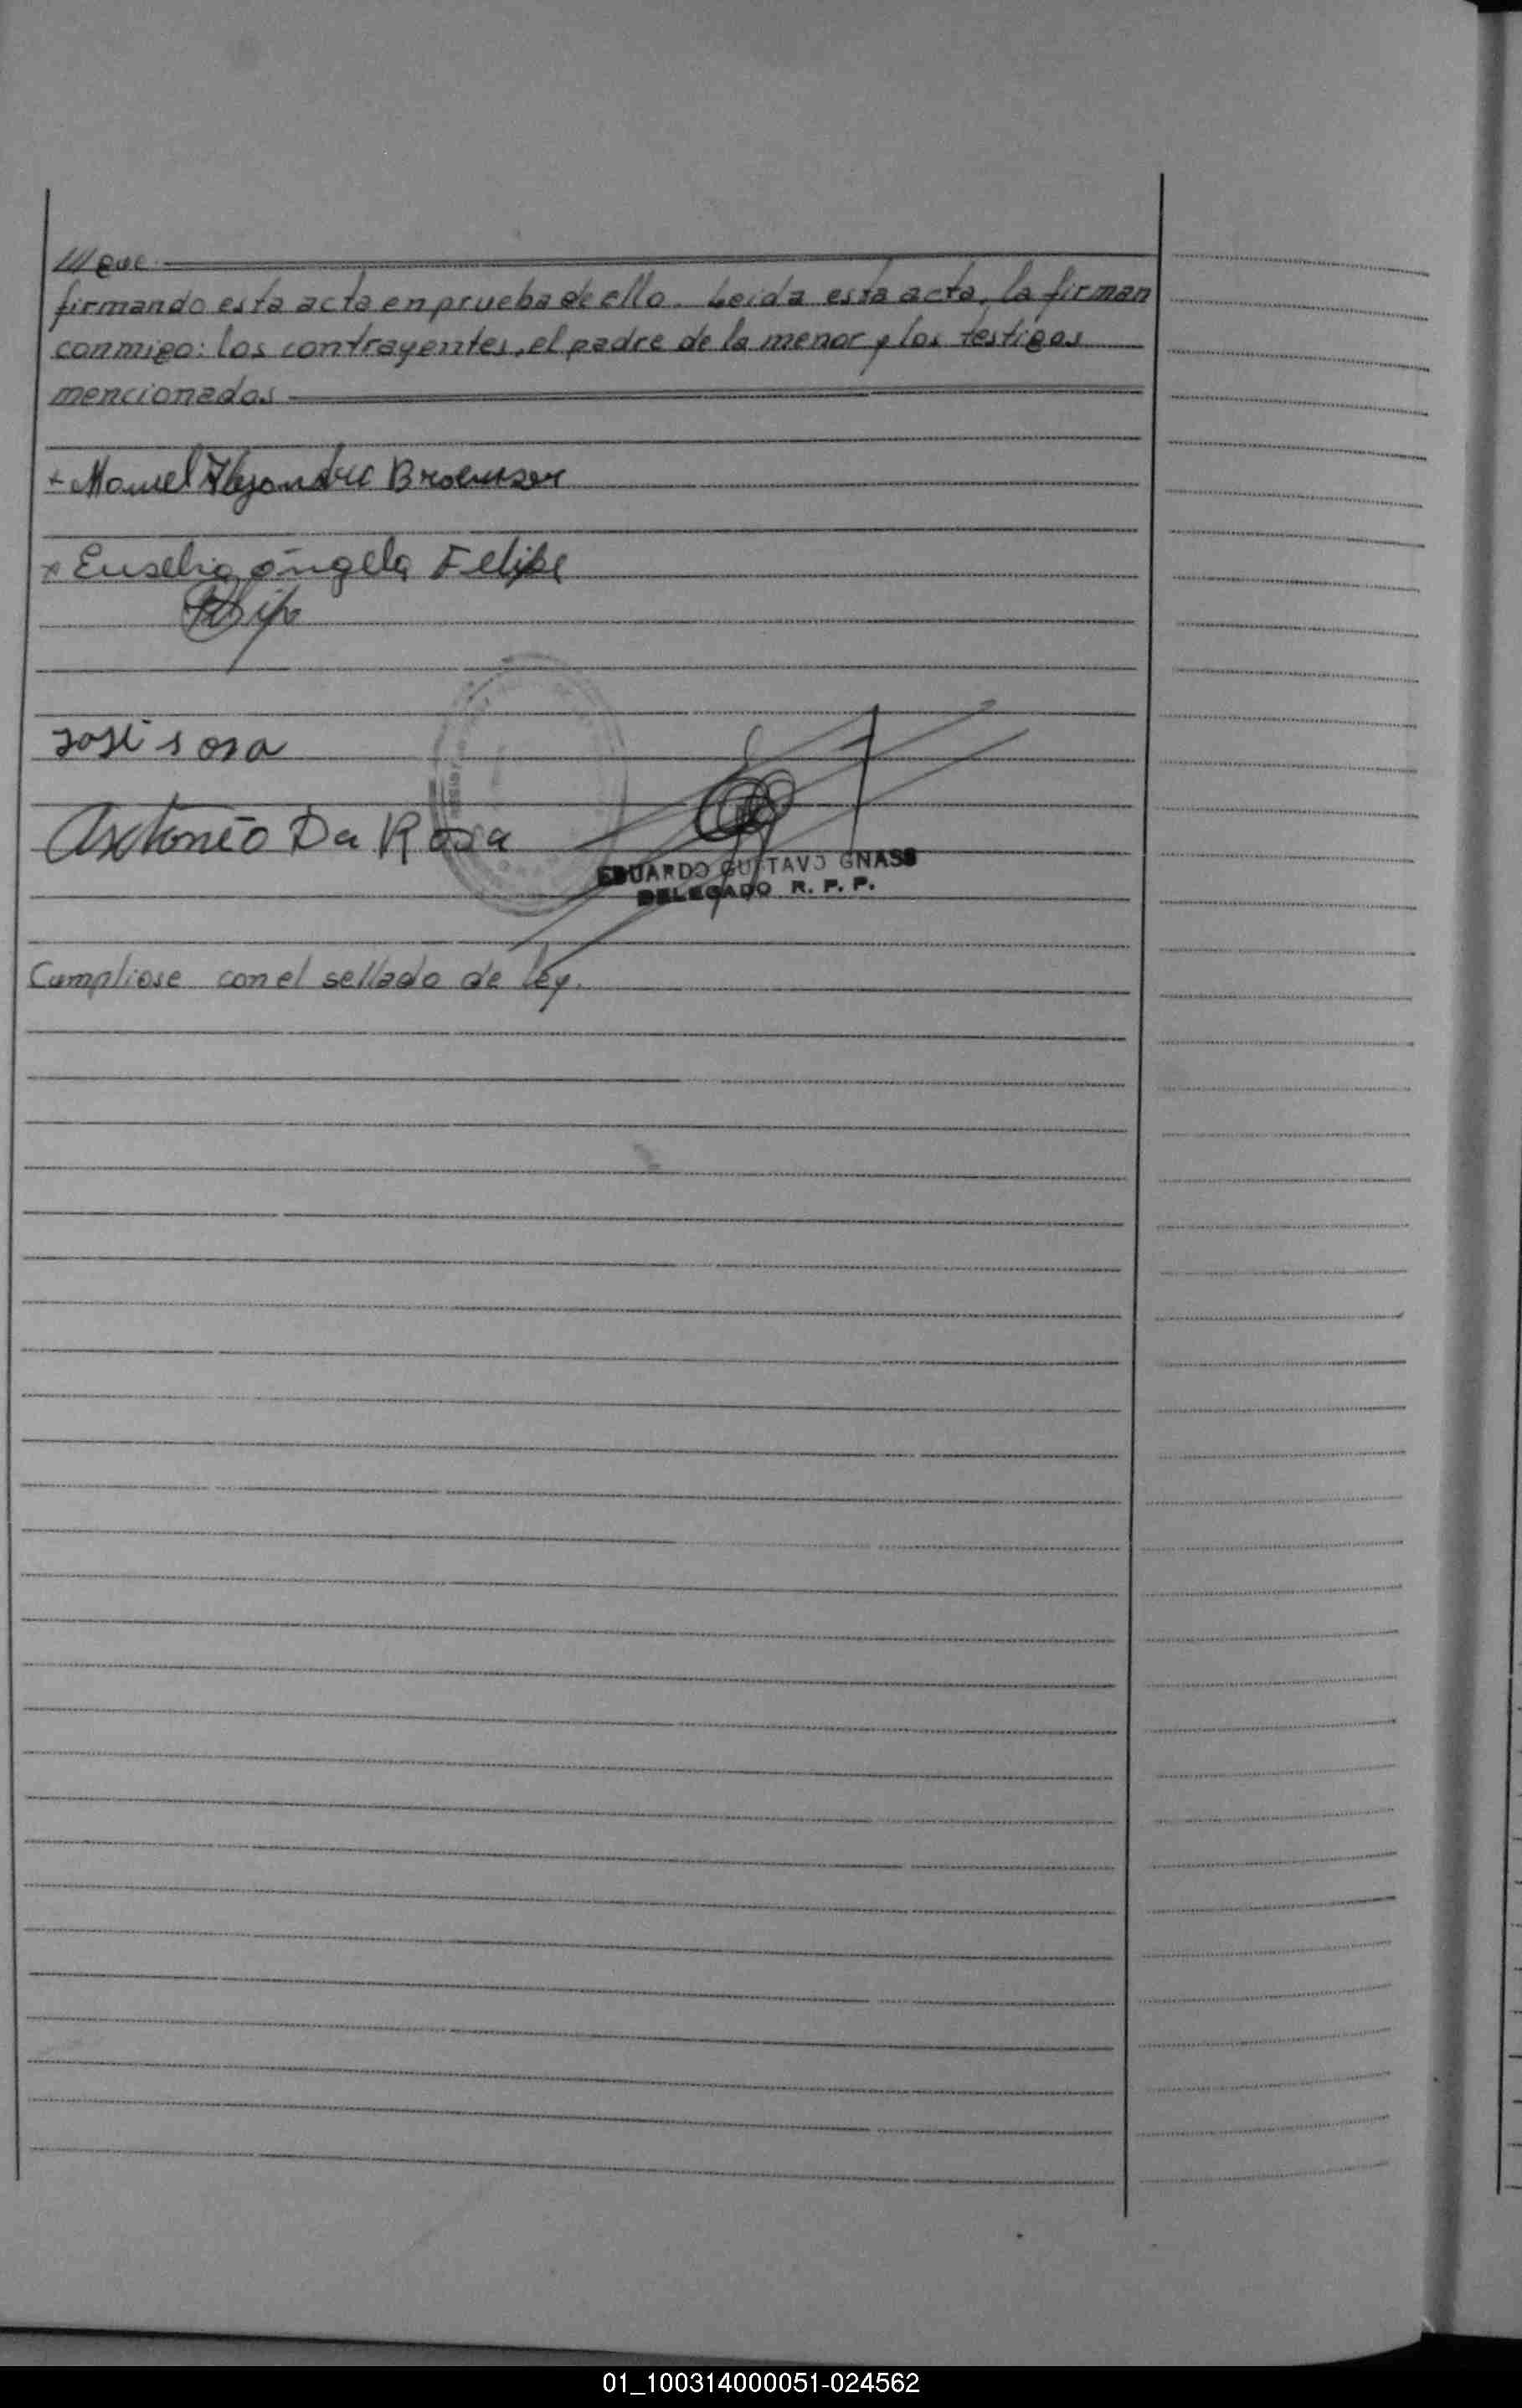 /// que
firmando esta acta en prueba de ello. Leida esta acta, la firman
conmigo: los contrayentes, el padre de la menor y los testigos
mencionados
x Manuel Alejandro
x Eusebia angela Felipe
José sosa
Antonio Da Rosa
EDUARDO GUSTAVO GNASS
DELEGADO R. P. P.
Cumpliose con el sellado de ley.
01_100314000051-024562